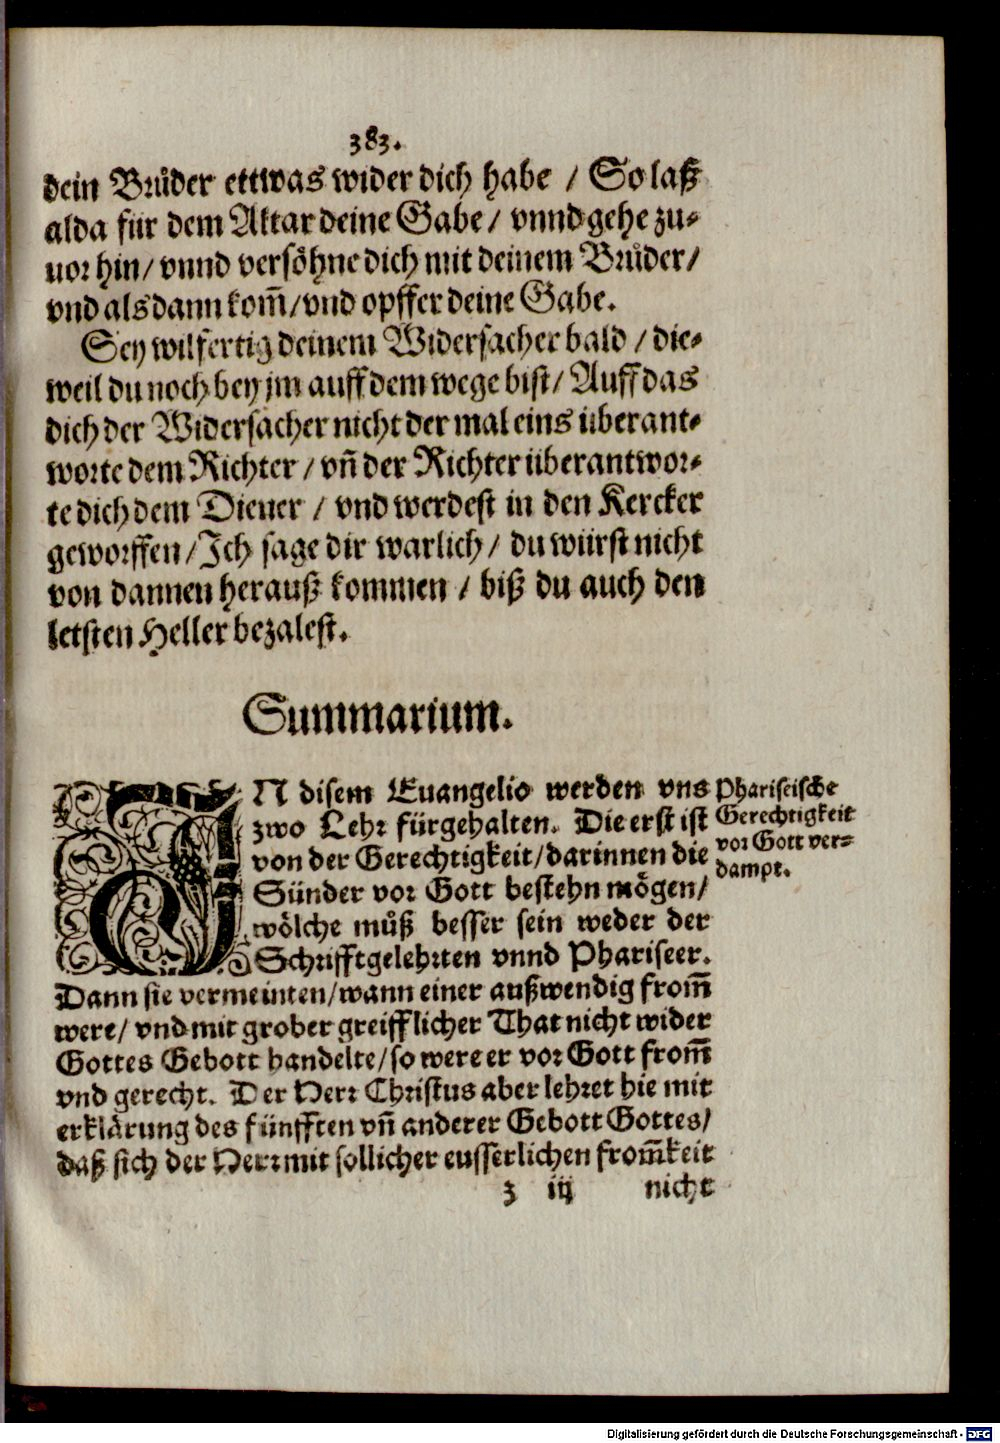 383.
dein Brůder ettwas wider dich habe / So laß
alda für dem Altar deine Gabe / vnnd gehe zu-
uor hin / vnnd versöhne dich mit deinem Brůder /
vnd als dann kom̃ / vnd opffer deine Gabe.
Sey wilfertig deinem Widersacher bald / die-
weil du noch bey jm auff dem wege bist / Auff das
dich der Widersacher nicht der mal eins überant-
worte dem Richter / vñ der Richter überantwor-
te dich dem Diener / vnd werdest in den Kercker
geworffen / Ich sage dir warlich / du würst nicht
von dannen herauß kommen / biß du auch den
letsten Heller bezalest.
Summarium.
IN disem Euangelio werden vns
zwo Lehr fürgehalten. Die erst ist
von der Gerechtigkeit / darinnen die
Sünder vor Gott bestehn mögen /
wölche můß besser sein weder der
Schrifftgelehrten vnnd Phariseer.
Dann sie vermeinten / wann einer außwendig from̃
were / vnd mit grober greifflicher That nicht wider
Gottes Gebott handelte / so were er vor Gott from̃
vnd gerecht. Der Herr Christus aber lehret hie mit
erklärung des fünfften vñ anderer Gebott Gottes /
daß sich der Herr mit sollicher eusserlichen from̃keit
z iij nicht
Phariseische
Gerechtigkeit
vor Gott ver-
dampt.
Digitalisierung gefördert durch die Deutsche Forschungsgemeinschaft - DFG